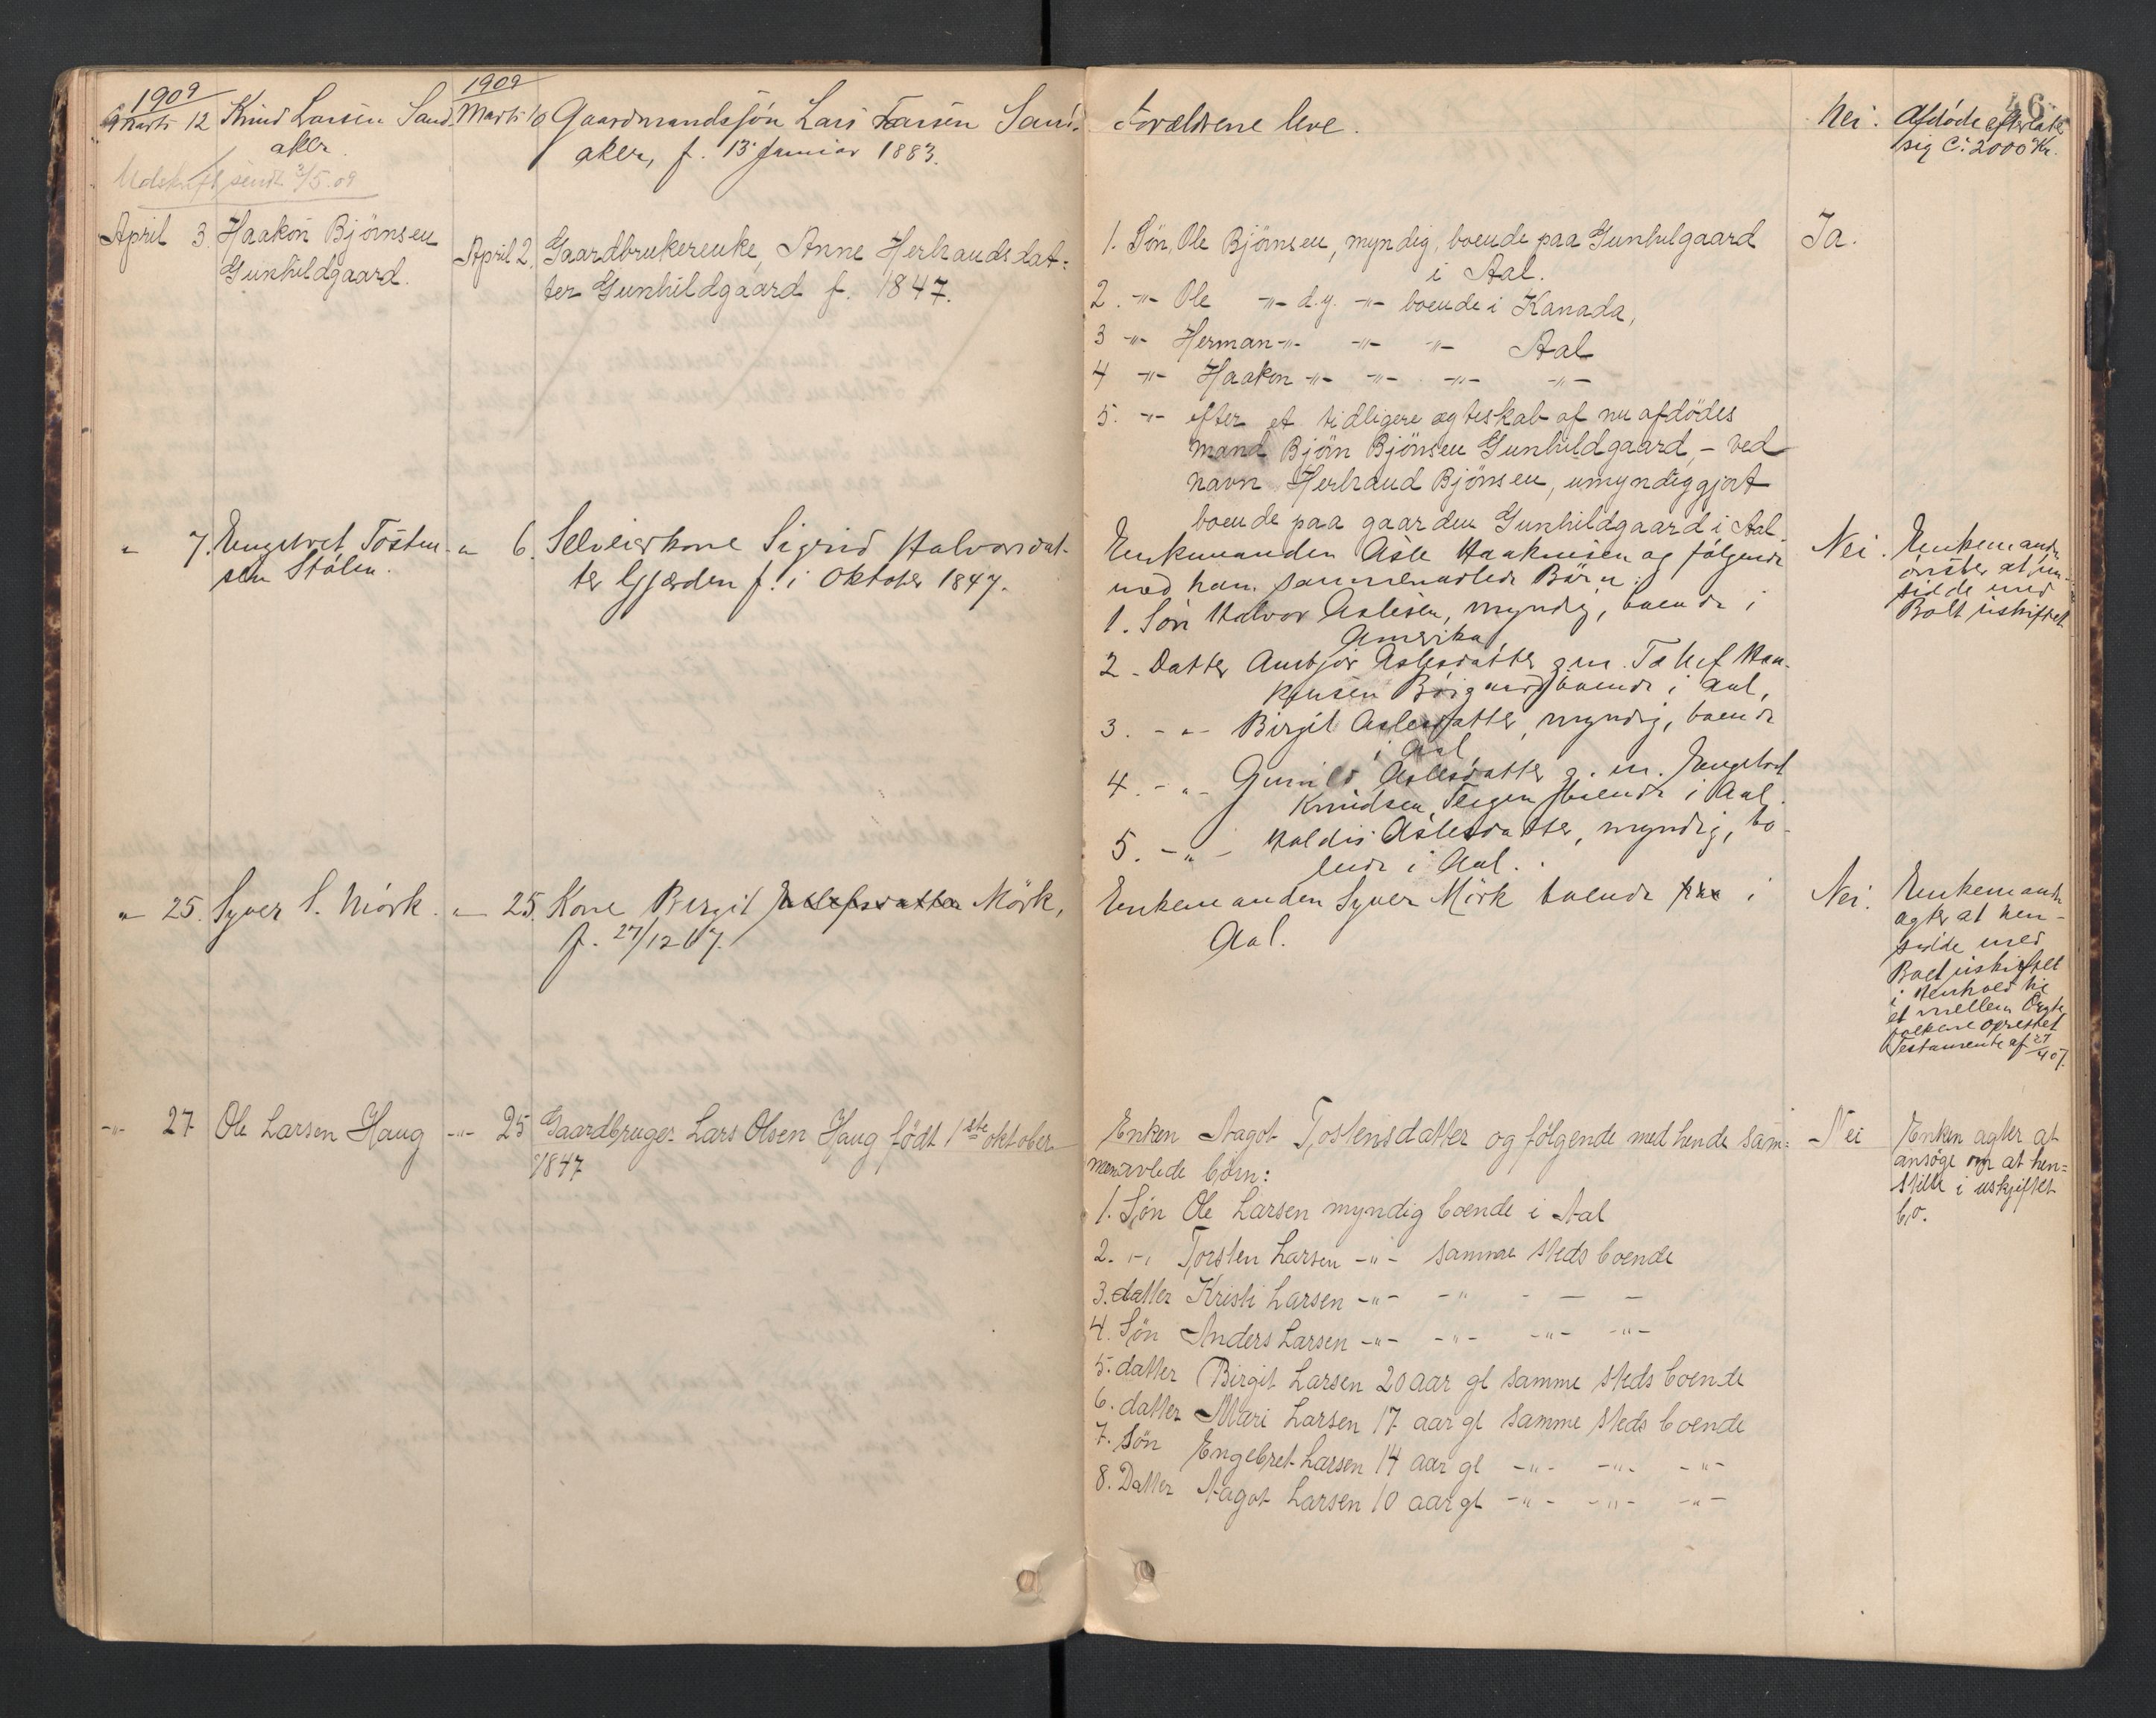 46.
1909
Marts 12 Knud Larsen Sand-
aker.
Udskrift sendt 3/5.09
1909
Marts 10 Gaardmandssön Lars Larsen Sand-
aker, f. 13 Januar 1883.
Forældrene leve.
Nei.
Afdöde efterlater
sig C: 2000 Kr.
April 3. Haakon Björnsen
Gunhildgaard.
April 2. Gaardbrukerenke, Anne Herbrandsdat-
ter Gunhildgaard f. 1847.
1. Sön, Ole Björnsen, myndig, boende paa Gunhilgaard
i Aal.
2. -"- Ole -"- d.y. -"- boende i Kanada,
3 -"- Herman -"- -"- -"- Aal
4 -"- Haakon -"- -"- -"- -"-
5. -"- efter et tidligere ægteskab af nu afdödes
mand Björn Björnsen Gunhildgaard, - ved
navn Herbrand Björnsen, umyndiggjort
boende paa gaarden Gunhildgaard i Aal.
Ja.
" 7. Engebret Tosten-
sen Stölen.
" 6. Selveierkone Sigrid Halvorsdat-
ter Gjerden f. i Oktober 1847.
Enkemanden Asle Haakonsen og følgende
med ham sammenavlede Börn:
1. Sön Halvor Aslesen, myndig, boende i
Amerika
2. Datter Ambjör Aslesdatter g.m. Tollef Haa-
konsen Börgaard boende i Aal,
3. - " - Birgit Aslesdatter, myndig, boende
i Aal
4. - " - Gunild Aslesdatter g. m. Engebret
Knudsen Teigen boende i Aal.
5. - " - Haldis Aslesdatter, myndig, bo-
ende i Aal.
Nei.
Enkemanden
önsker at hen-
sidde med
Boet uskiftet
" 25. Syver S. Mörk.
" 25. Kone Birgit Mörk,
f. 27/12 67.
Enkemanden Syver Mörk boende i
Aal.
Nei.
Enkemanden
agter at hen-
sidde med
Boet uskiftet
i Henhold til
et mellem Ægte-
folkene oprettet
Testamente af 27/4 07.
-"- 27 Ole Larsen Haug
-"- 25 Gaardbruger Lars Olsen Haug født 1ste oktober
1847
Enken Aagot Tostensdatter og følgende med hende sam-
menavlede börn:
1. Søn Ole Larsen myndig boende i Aal
2. -"- Torsten Larsen -"- samme steds boende
3. datter Kristi Larsen -"- -" - — —
4. Søn Anders Larsen -"- -"- -"- -"-
5. datter Birgit Larsen 20 aar gl samme steds boende
6. datter Mari Larsen 17 aar gl samme steds boende
7. Søn Engebret Larsen 14 aar gl -"- -"- -"-
8. Datter Aagot Larsen 10 aar gl -"- -"- -"-
Nei
Enken agter at
ansöge om at hen-
sidde i uskiftet
bo.